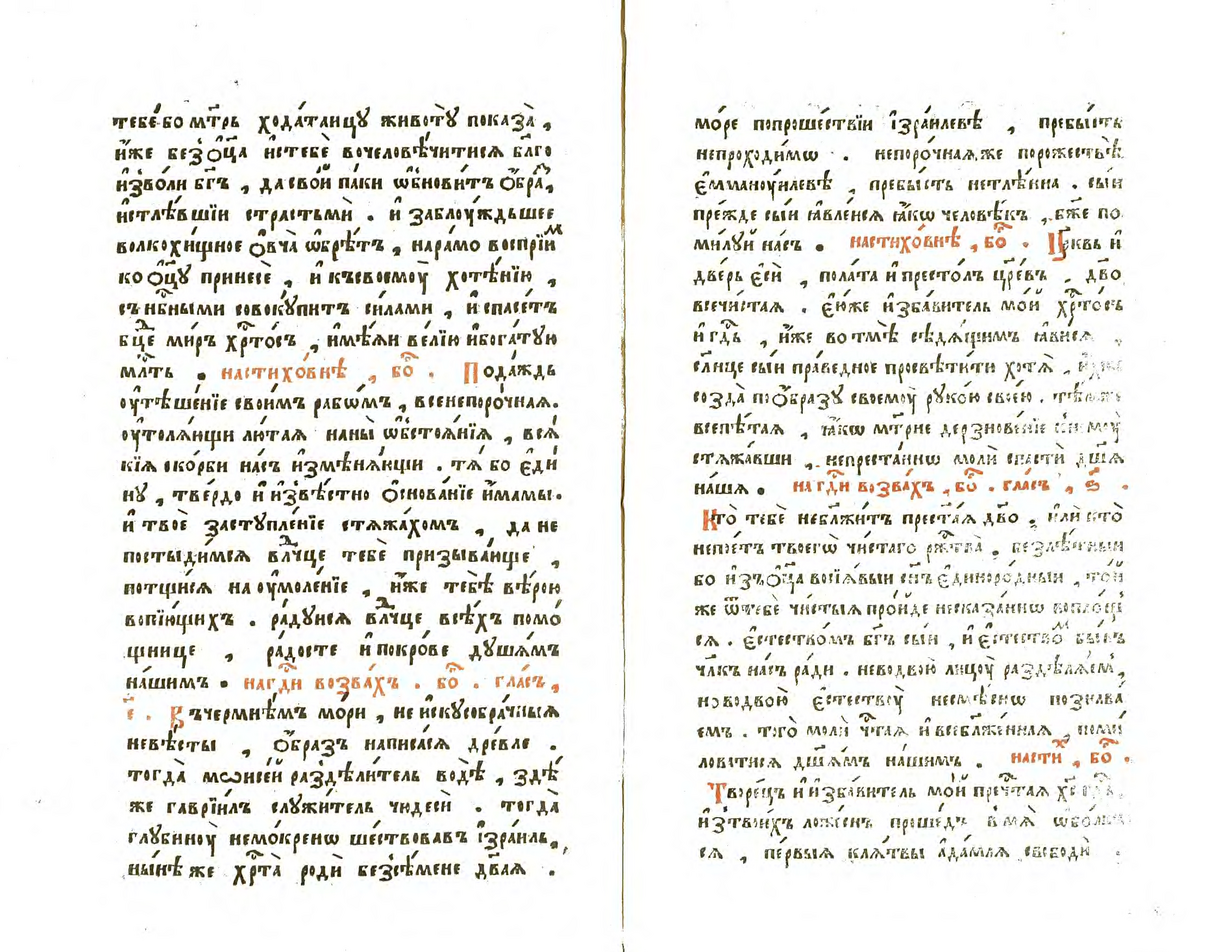 тебе́ бо мт҃рь хода́таицу животу̀ показа̀ ,
и҆́же без̾ ѻ҆ц҃а и҆стебѐ вочеловѣ́читисѧ бл҃го
и҆зво́ли бг҃ъ , да сво́й па́ки ѡ҆бнови́тъ ѻ҆́бра ,
и҆стлѣ́вшїи страстьмѝ . и҆ заблоу́ждьшее
волкохи́щное ѻ҆вча̀ ѡ҆брѣ́тъ , нара́мо воспрїи́м
ко ѻ҆ц҃у принесѐ , и҆ къ своемоу̀ хотѣ́нїю ,
съ нб҃ными совокупи́тъ си́лами , и҆ спасе́тъ
бц҃е ми́ръ хр҃то́съ , и҆мѣ́ѧи ве́лїю и҆ бога́тую
мл҃ть . настихо́внѣ , бо҃ . Пода́ждь
оу҆тѣше́нїе свои́мъ рабѡ́мъ , всенепоро́чнаѧ .
оу҆толѧ́ющи лю́таѧ на ны̀ ѡ҆бстоѧ́нїѧ , всѧ́
кїѧ ско́рби на́съ и҆змѣнѧ́ющи . тѧ́ бо є҆ди́
ну , тве́рдо и҆ и҆звѣ́стно ѻ҆снова́нїе и҆́мамы .
и҆ твоѐ заступле́нїе стѧжа́хомъ , да не
постыди́мсѧ влⷣчце тебѐ призыва́юще ,
потщи́сѧ на оу҆моле́нїе , и҆́же тебѣ̀ вѣ́рою
вопїю́щихъ . ра́дуисѧ влⷣчце всѣ́хъ помо́
щнице , ра́досте и҆ покро́ве душа́мъ
на́шимъ . на гдⷭ҇и возва́хъ . бо҃ . гла́съ ,
є҃ . Въ чермнѣ́мъ мо́ри , не и҆скусобра́чныѧ
невѣ́сты , ѻ҆́бразъ написа́сѧ дре́вле .
тогда̀ мѡѷсе́й раздѣли́тель водѣ̀ , здѣ́
же гаврїи́лъ служи́тель чюдесѝ . тогда̀
глубиноу̀ немо́кренѡ ше́ствовавъ і҆зра́иль ,
ны́нѣ же хр҃та̀ родѝ без̾сѣ́мене дв҃аѧ .
мо́ре попроше́ствїи і҆зра́илевѣ , пребы́сть
непроходи́мѡ . непоро́чнаѧ же порожествѣ̀
є҆мманоуи́левѣ , пребы́сть нетлѣ́нна . сы́и
пре́жде сы́и ꙗ҆вле́исѧ ꙗ҆́кѡ человѣ́къ , бж҃е по
ми́луй на́съ . настихо́внѣ , бо҃ . Цр҃квь и҆
две́рь є҆сѝ , пола́та и҆ престо́лъ цр҃евъ , дв҃о
всечи́стаѧ . є҆ю́же и҆зба́витель мо́й хр҃то́съ
и҆ гдⷭ҇ь , и҆́же во тмѣ̀ сѣдѧ́щимъ ꙗ҆ви́сѧ ,
сл҃нце сы́и пра́ведное просвѣти́ти хотѧ̀ , и҆́хже
созда̀ по ѻ҆́бразу своемоу̀ руко́ю свое́ю . тѣ́мже
всепѣ́таѧ , ꙗ҆́кѡ мт҃рне дерзнове́нїе къ немоу̀
стѧжа́вши , непреста́ннѡ молѝ спастѝ дш҃а
на́шѧ . на гдⷭ҇и возва́хъ , бо҃ . гла́съ , ѕ҃ .
Кто̀ тебѐ неблж҃и́тъ прест҃а́ѧ дв҃о , и҆лѝ кто̀
непое́тъ твоегѡ̀ чи́стаго рж҃тва̀ . безлѣ́тныи
бо и҆зъ ѻ҆ц҃а возсїѧ́выи сн҃ъ є҆диноро́дныи , то́й
же ѿ тебѐ чи́стыѧ про́йде несказа́ннѡ воплощ
сѧ . є҆стество́мъ бг҃ъ сы́и , и҆ є҆стество́м бы́въ
чл҃къ на́съ ра́ди . не во двою̀ лицоу̀ раздѣлѧ́ем ,
но во двою̀ є҆стествоу̀ несмѣ́снѡ познава́
емъ . того̀ молѝ чт҃аѧ и҆ всеблаже́ннаѧ , поми
ловатисѧ дш҃а́мъ на́шимъ . насти́х , бо҃ .
Творе́цъ и҆ и҆зба́витель мо́й преч҃таѧ хс҃ гдⷭ҇ь ,
и҆з̾ твои́хъ ложе́снъ проше́дъ в мѧ̀ ѡ҆бо́лкъ
сѧ , пе́рвыѧ клѧ́твы а҆да́млѧ свободѝ .